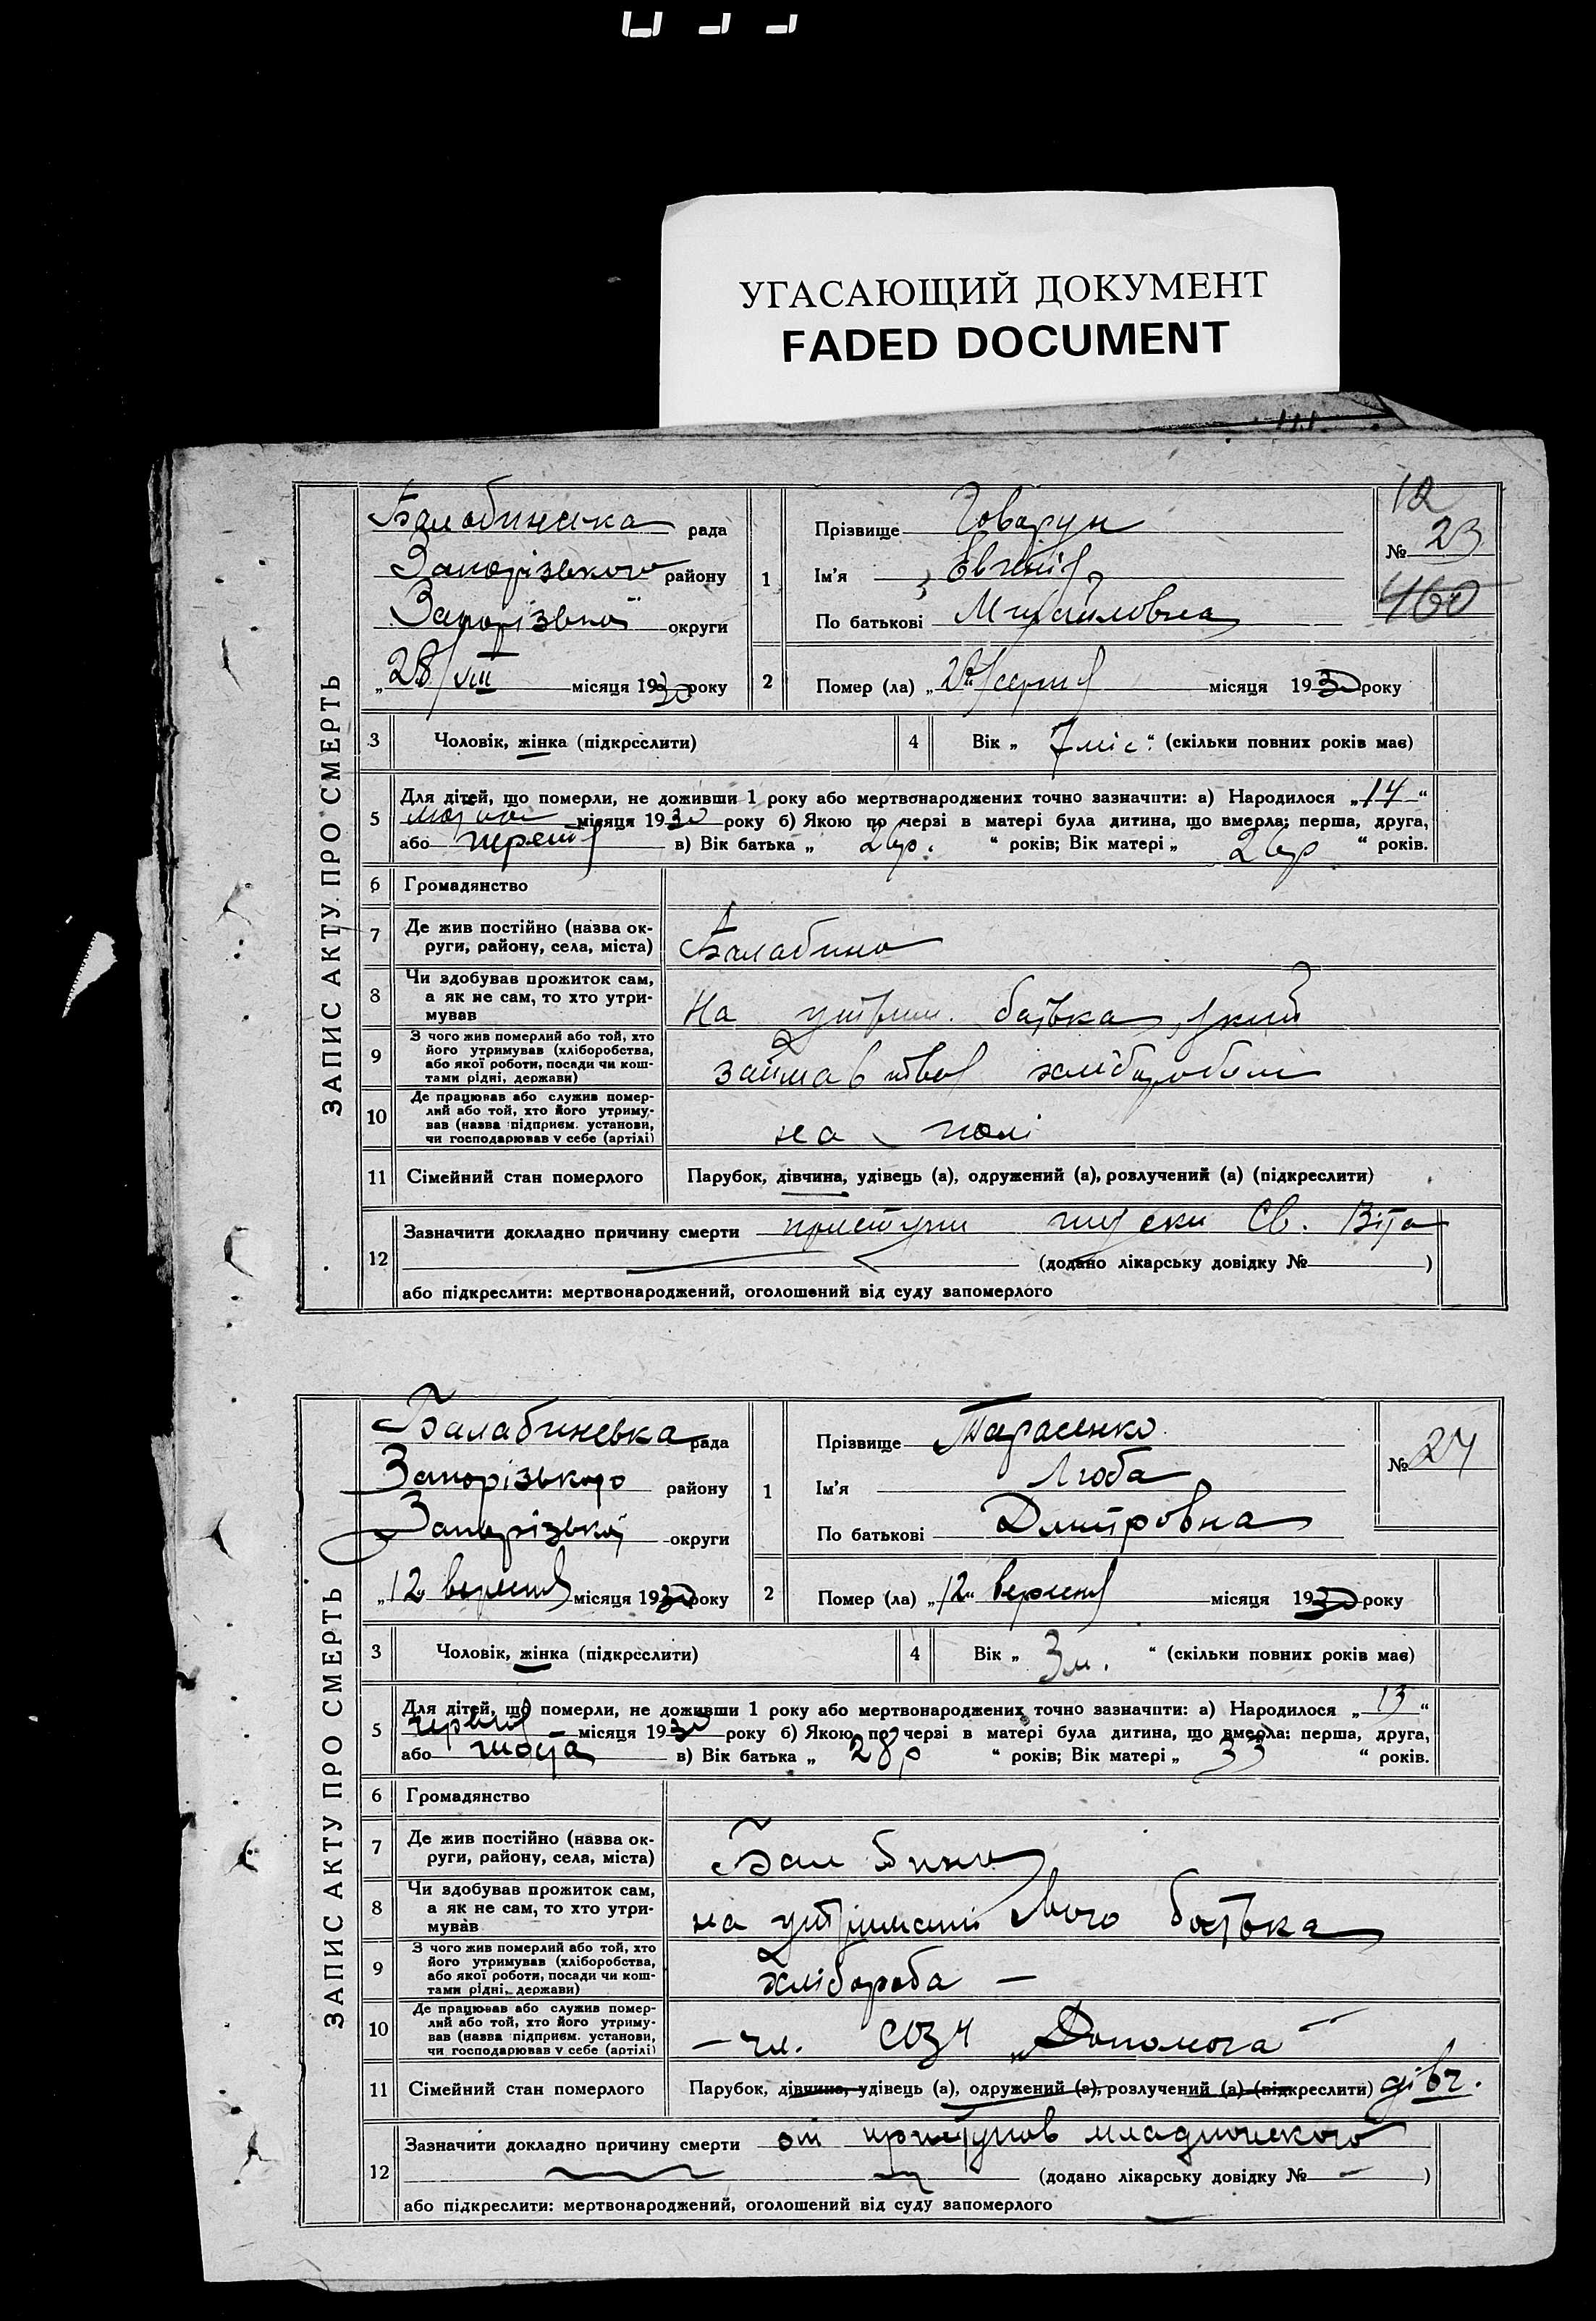 УГАСАЮЩИЙ ДОКУМЕНТ
FADED DOCUMENT
ЗАПИС АКТУ ПРО СМЕРТЬ
Балабинська рада
Запорізького району
Запорізької округи
„28/VIII місяця 1930 року
1
Прізвище Говарун
Ім’я Євгенія
По батькові Михайловна
12
№ 23
460
2 Помер (ла) „ серпня місяця 1930 року
3 Чоловік, жінка (підкреслити)
4 Вік „ 7 міс“ (скільки повних років має)
5 Для дітей, що померли, не доживши 1 року або мертвонароджених точно зазначити: а) Народилося „14“
місяця 1930 року б) Якою по черзі в матері була дитина, що вмерла: перша, друга,
або третя в) Вік батька „ 26р. “ років; Вік матері „ 26р “ років.
6 Громадянство
7 Де жив постійно (назва ок-
руги, району, села, міста) Балабино
8 Чи здобував прожиток сам,
а як не сам, то хто утри-
мував На утрим. батька, який
9 З чого жив померлий або той, хто
його утримував (хліборобства,
або якої роботи, посади чи кош-
тами рідні, держави) займався хліборобст
10 Де працював або служив помер-
лий або той, хто його утриму-
вав (назва підприєм. установи,
чи господарював у себе (артілі) на полі
11 Сімейний стан померлого Парубок, дівчина, удівець (а), одружений (а), розлучений (а) (підкреслити)
12 Зазначити докладно причину смерти приступи пляски Св. Віта
(додано лікарську довідку № )
або підкреслити: мертвонароджений, оголошений від суду запомерлого
ЗАПИС АКТУ ПРО СМЕРТЬ
Балабинська рада
Запорізького району
Запорізької округи
„12 вересня місяця 1930 року
1
Прізвище Тарасенко
Ім’я Люба
По батькові Дмитровна
№ 24
2 Помер (ла) „12“ вересня місяця 1930 року
3 Чоловік, жінка (підкреслити)
4 Вік „ 3 м. “ (скільки повних років має)
5 Для дітей, що померли, не доживши 1 року або мертвонароджених точно зазначити: а) Народилося „13“
червня місяця 1930 року б) Якою по черзі в матері була дитина, що вмерла: перша, друга,
або шоста в) Вік батька „ 28р “ років; Вік матері „ 33 “ років.
6 Громадянство
7 Де жив постійно (назва ок-
руги, району, села, міста) Балабино
8 Чи здобував прожиток сам,
а як не сам, то хто утри-
мував на утриманні свого батька
9 З чого жив померлий або той, хто
його утримував (хліборобства,
або якої роботи, посади чи кош-
тами рідні, держави) хлібороба —
10 Де працював або служив помер-
лий або той, хто його утриму-
вав (назва підприєм. установи,
чи господарював у себе (артілі) — чл. СОЗ'у „Допомога“
11 Сімейний стан померлого Парубок, дівчина, удівець (а), одружений (а), розлучений (а) (підкреслити) дівч.
12 Зазначити докладно причину смерти от приступов младенческого
(додано лікарську довідку № — )
або підкреслити: мертвонароджений, оголошений від суду запомерлого